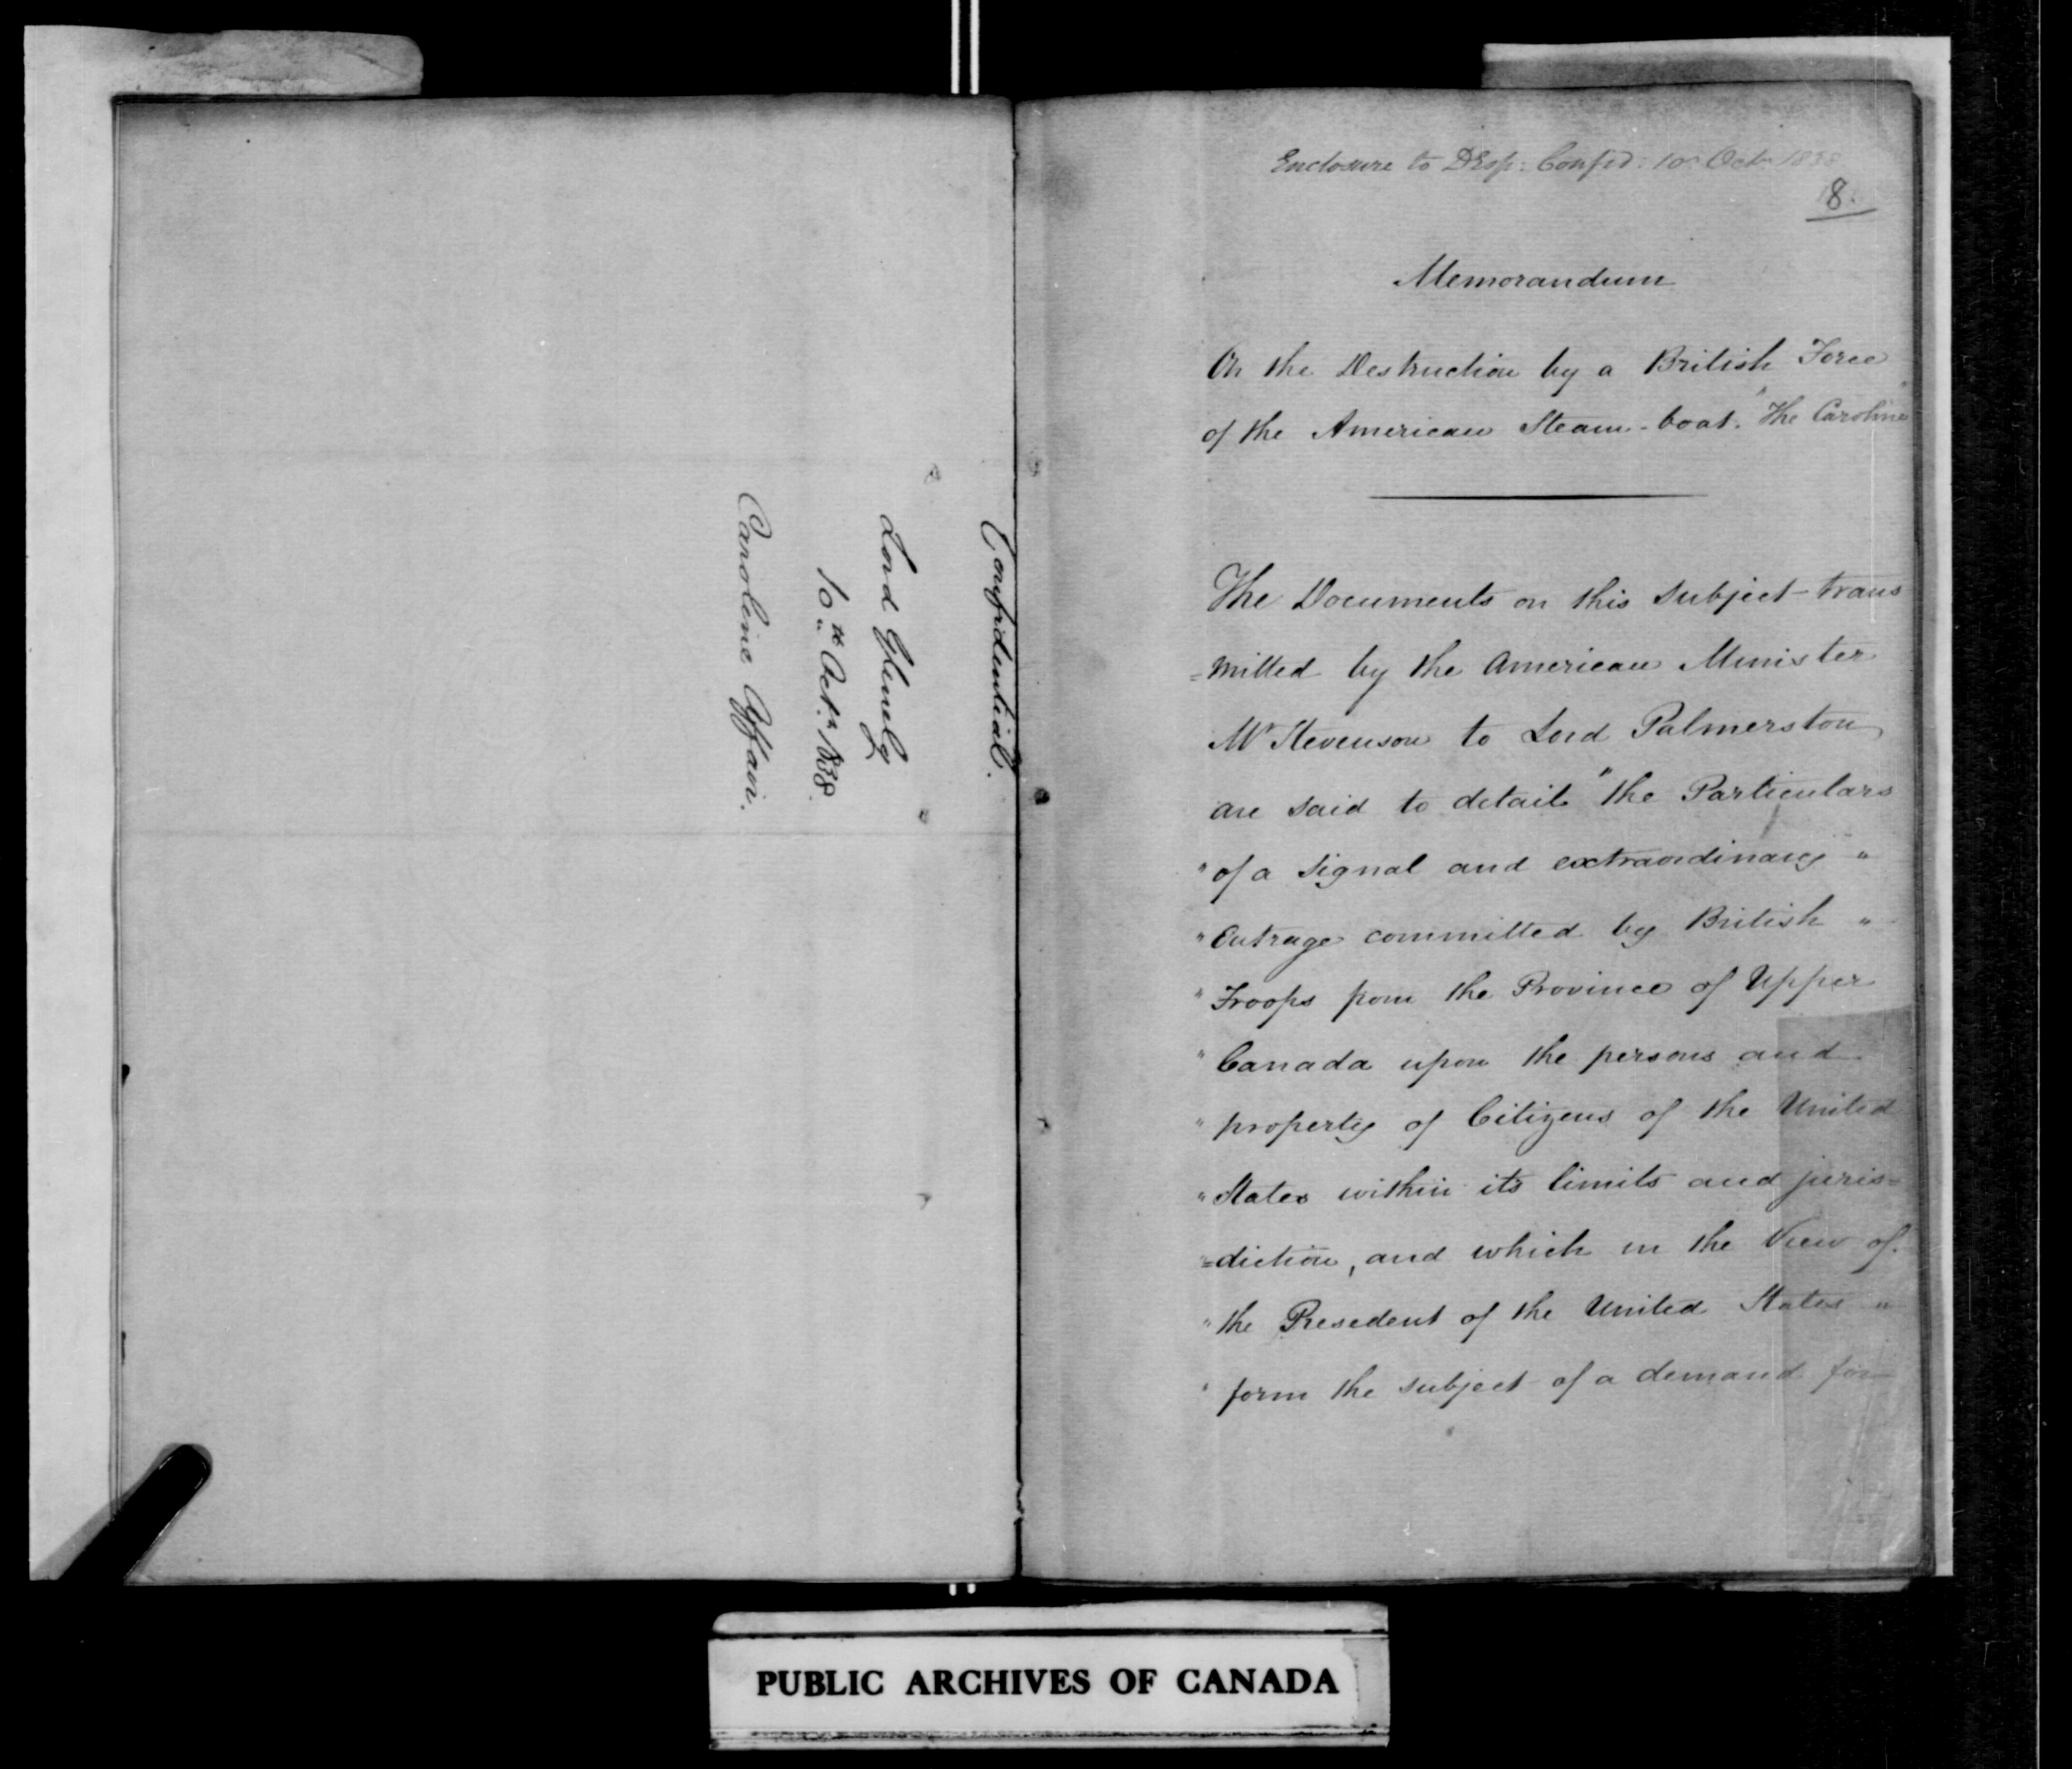 Confidential.
Lord Glenelg
10th Octr 1838.
Caroline Affair.
Enclosure to DEsp: Confid: 10 Octr 1838
8.
Memorandum
On the Destruction by a British Force
of the American Steam-boat. "The Caroline"
The Documents on this subject trans
=mitted by the American Minister
Mr Stevenson to Lord Palmerston
are said to detail "the Particulars
" of a signal and extraordinary "
" Outrage committed by British "
" Troops from the Province of Upper
" Canada upon the persons and
" property of Citizens of the United
" States within its limits and juris=
"=diction, and which in the View of
" the President of the United States "
" form the subject of a demand for
PUBLIC ARCHIVES OF CANADA